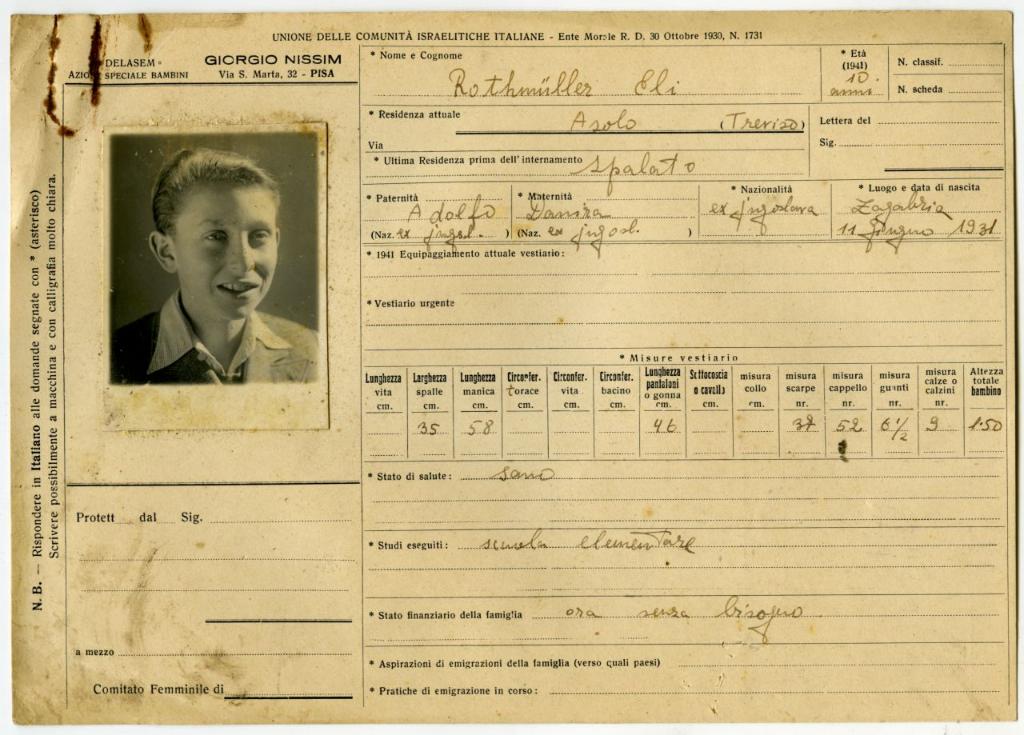 UNIONE DELLE COMUNITÀ ISRAELITICHE ITALIANE - Ente Morale R. D. 30 Ottobre 1930, N. 1731
DELASEM
AZIONE SPECIALE BAMBINI
GIORGIO NISSIM
Via S. Marta, 32 - PISA
N. B. — Rispondere in Italiano alle domande segnate con * (asterisco)
Scrivere possibilmente a macchina e con calligrafia molto chiara.
* Nome e Cognome
Rothmüller Eli
* Età
(1941)
10
anni
N. classif.
N. scheda
* Residenza attuale
Asolo (Treviso)
Via
Lettera del
Sig.
* Ultima Residenza prima dell'internamento Spalato
* Paternità
Adolfo
(Naz. ex jugosl. )
* Maternità
(Naz. ex jugosl. )
* Nazionalità
ex jugoslava
* Luogo e data di nascita
Zagabria
11 giugno 1931
* 1941 Equipaggiamento attuale vestiario:
* Vestiario urgente
* Misure vestiario
Lunghezza vita cm.
Larghezza spalle cm. 35
Lunghezza manica cm. 58
Circonfer. torace cm.
Circonfer. vita cm.
Circonfer. bacino cm.
Lunghezza pantaloni o gonna cm. 46
Sottocoscia o cavallo cm.
misura collo cm.
misura scarpe nr.
misura cappello nr. 52
misura guanti nr. 6 1/2
misura calze o calzini nr. 9
Altezza totale bambino 1.50
* Stato di salute: sano
* Studi eseguiti: scuola elementare
* Stato finanziario della famiglia ora senza bisogno
* Aspirazioni di emigrazioni della famiglia (verso quali paesi)
* Pratiche di emigrazione in corso:
Protett dal Sig.
a mezzo
Comitato Femminile di